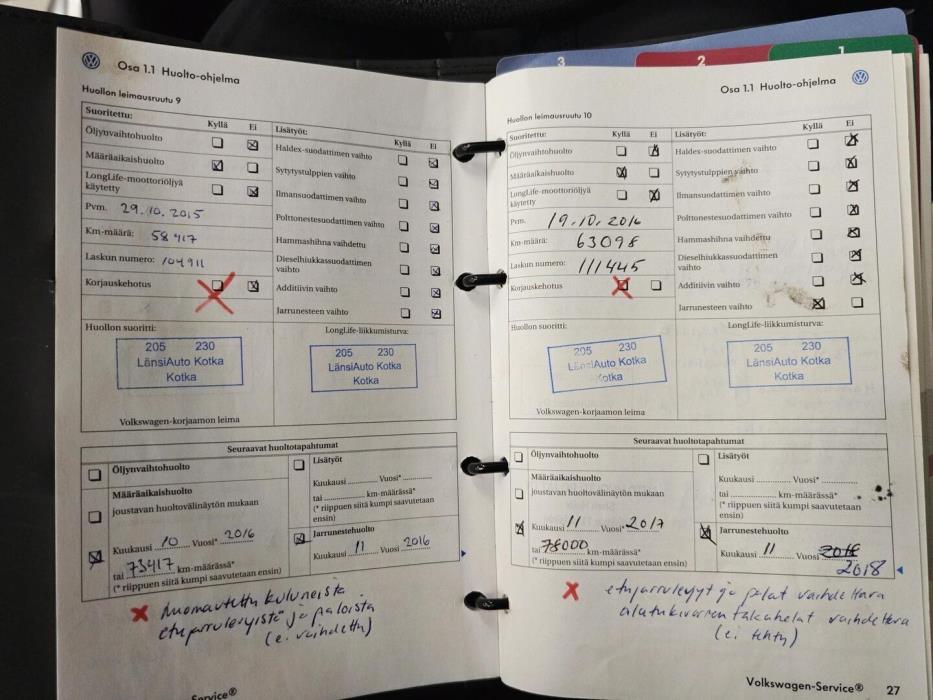 3
2
1
Osa 1.1 Huolto-ohjelma
Huollon leimausruutu 9
Suoritettu:
Kyllä Ei
Öljynvaihtohuolto
Määräaikaishuolto
LongLife-moottoriöljyä
käytetty
Pvm. 29.10.2015
Km-määrä: 58417
Laskun numero: 104911
Korjauskehotus
Lisätyöt:
Kyllä Ei
Haldex-suodattimen vaihto
Sytytystulppien vaihto
Ilmansuodattimen vaihto
Polttonestesuodattimen vaihto
Hammashihna vaihdettu
Dieselhiukkassuodattimen
vaihto
Additiivin vaihto
Jarrunesteen vaihto
Huollon suoritti:
205 230
LänsiAuto Kotka
Kotka
Volkswagen-korjaamon leima
LongLife-liikkumisturva:
205 230
LänsiAuto Kotka
Kotka
Seuraavat huoltotapahtumat
Öljynvaihtohuolto
Määräaikaishuolto
joustavan huoltovälinäytön mukaan
Kuukausi 10 Vuosi* 2016
tai 73417 km-määrässä*
(* riippuen siitä kumpi saavutetaan ensin)
Lisätyöt
Kuukausi Vuosi*
tai km-määrässä*
(* riippuen siitä kumpi saavutetaan
ensin)
Jarrunestehuolto
Kuukausi 11 Vuosi 2016
x huomautettu kuluneista
etujarrulevyistä ja paloista
(ei vaihdettu)
Service®
Osa 1.1 Huolto-ohjelma
Huollon leimausruutu 10
Suoritettu:
Kyllä Ei
Öljynvaihtohuolto
Määräaikaishuolto
LongLife-moottoriöljyä
käytetty
Pvm. 19.10.2016
Km-määrä: 63098
Laskun numero: 111445
Korjauskehotus
Lisätyöt:
Kyllä Ei
Haldex-suodattimen vaihto
Sytytystulppien vaihto
Ilmansuodattimen vaihto
Polttonestesuodattimen vaihto
Hammashihna vaihdettu
Dieselhiukkassuodattimen
vaihto
Additiivin vaihto
Jarrunesteen vaihto
Huollon suoritti:
205 230
LänsiAuto Kotka
Kotka
Volkswagen-korjaamon leima
LongLife-liikkumisturva:
205 230
LänsiAuto Kotka
Kotka
Seuraavat huoltotapahtumat
Öljynvaihtohuolto
Määräaikaishuolto
joustavan huoltovälinäytön mukaan
Kuukausi 11 Vuosi* 2017
tai 78000 km-määrässä*
(* riippuen siitä kumpi saavutetaan ensin)
Lisätyöt
Kuukausi Vuosi*
tai km-määrässä*
(* riippuen siitä kumpi saavutetaan
ensin)
Jarrunestehuolto
Kuukausi 11 Vuosi 2018
x etujarrulevyt ja palat vaihdettava
alatukivarren takahelat vaihdettava
(ei tehty)
Volkswagen-Service® 27